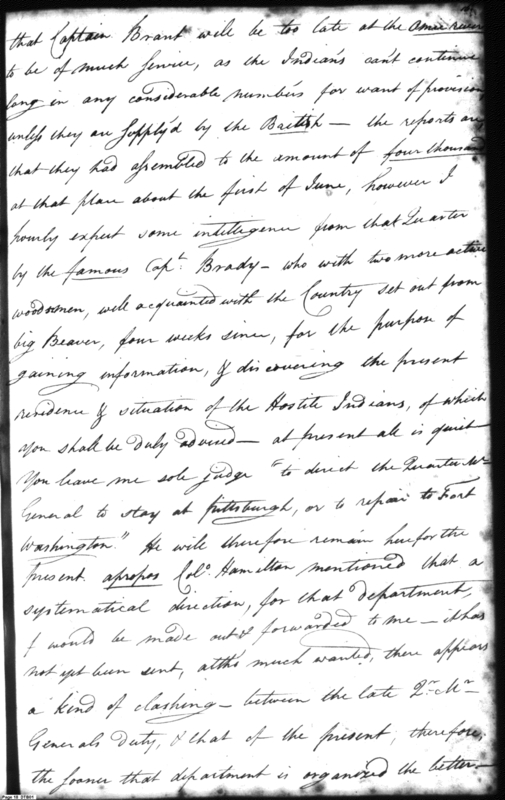 that Captain Brant will be too late at the Omee river
to be of much service, as the Indians can't continue
long in any considerable numbers for want of provision
unless they are supply'd by the British — the reports are
that they had assembled to the amount of four thousand
at that place about the first of June, however I
hourly expect some intillegence from that Quarter
by the famous Capt. Brady — who with two more active
woodsmen, well acquainted with the Country set out from
big Beaver, four weeks since, for the purpose of
gaining information, & discovering the present
residence & situation of the Hostile Indians, of which
you shall be duly advised — at present all is quiet
You leave me sole judge "to direct the Quarter Mr
General to stay at Pittsburgh, or to repair to Fort
Washington." He will therefore remain here for the
present. apropos Colo. Hamilton mentioned that a
systematical direction, for that department,
would be made out & forwarded to me — it has
not yet been sent, altho much wanted, there appears
a kind of clashing — between the late Qr. Mr
Generals duty, & that of the present, therefore,
the sooner that department is organized the better —